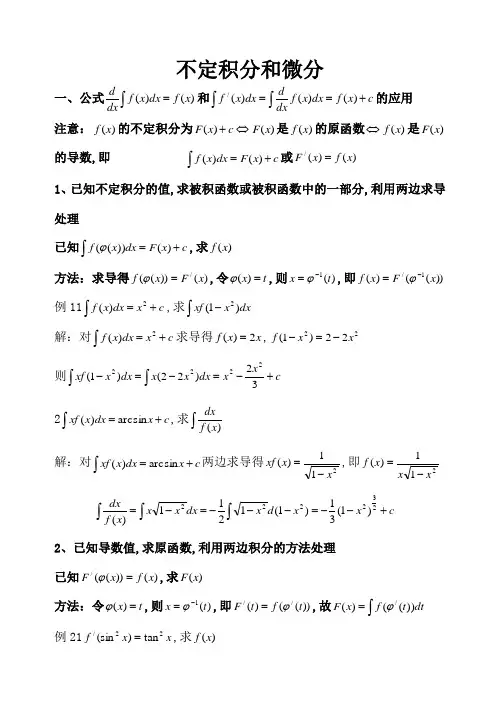 不定积分和微分
一、公式 $\frac{d}{dx}\int f(x)dx = f(x)$ 和 $\int f^{/}(x)dx = \int \frac{d}{dx}f(x)dx = f(x)+c$ 的应用
注意：$f(x)$ 的不定积分为 $F(x)+c \Leftrightarrow F(x)$ 是 $f(x)$ 的原函数 $\Leftrightarrow f(x)$ 是 $F(x)$
的导数,即 $\int f(x)dx = F(x)+c$ 或 $F^{/}(x) = f(x)$
1、已知不定积分的值,求被积函数或被积函数中的一部分,利用两边求导
处理
已知 $\int f(\varphi(x))dx = F(x)+c$,求 $f(x)$
方法：求导得 $f(\varphi(x)) = F^{/}(x)$,令 $\varphi(x)=t$,则 $x=\varphi^{-1}(t)$,即 $f(x) = F^{/}(\varphi^{-1}(x))$
例 11 $\int f(x)dx = x^2+c$,求 $\int xf(1-x^2)dx$
解：对 $\int f(x)dx = x^2+c$ 求导得 $f(x)=2x$, $f(1-x^2)=2-2x^2$
则 $\int xf(1-x^2)dx = \int x(2-2x^2)dx = x^2-\frac{2x^2}{3}+c$
2 $\int xf(x)dx = \arcsin x+c$,求 $\int \frac{dx}{f(x)}$
解：对 $\int xf(x)dx = \arcsin x+c$ 两边求导得 $xf(x)=\frac{1}{\sqrt{1-x^2}}$,即 $f(x)=\frac{1}{x\sqrt{1-x^2}}$
$\int \frac{dx}{f(x)} = \int x\sqrt{1-x^2}dx = -\frac{1}{2}\int \sqrt{1-x^2}d(1-x^2) = -\frac{1}{3}(1-x^2)^{\frac{3}{2}}+c$
2、已知导数值,求原函数,利用两边积分的方法处理
已知 $F^{/}(\varphi(x)) = f(x)$,求 $F(x)$
方法：令 $\varphi(x)=t$,则 $x=\varphi^{-1}(t)$,即 $F^{/}(t) = f(\varphi^{/}(t))$,故 $F(x) = \int f(\varphi^{/}(t))dt$
例 21 $f^{/}(\sin^2 x) = \tan^2 x$,求 $f(x)$